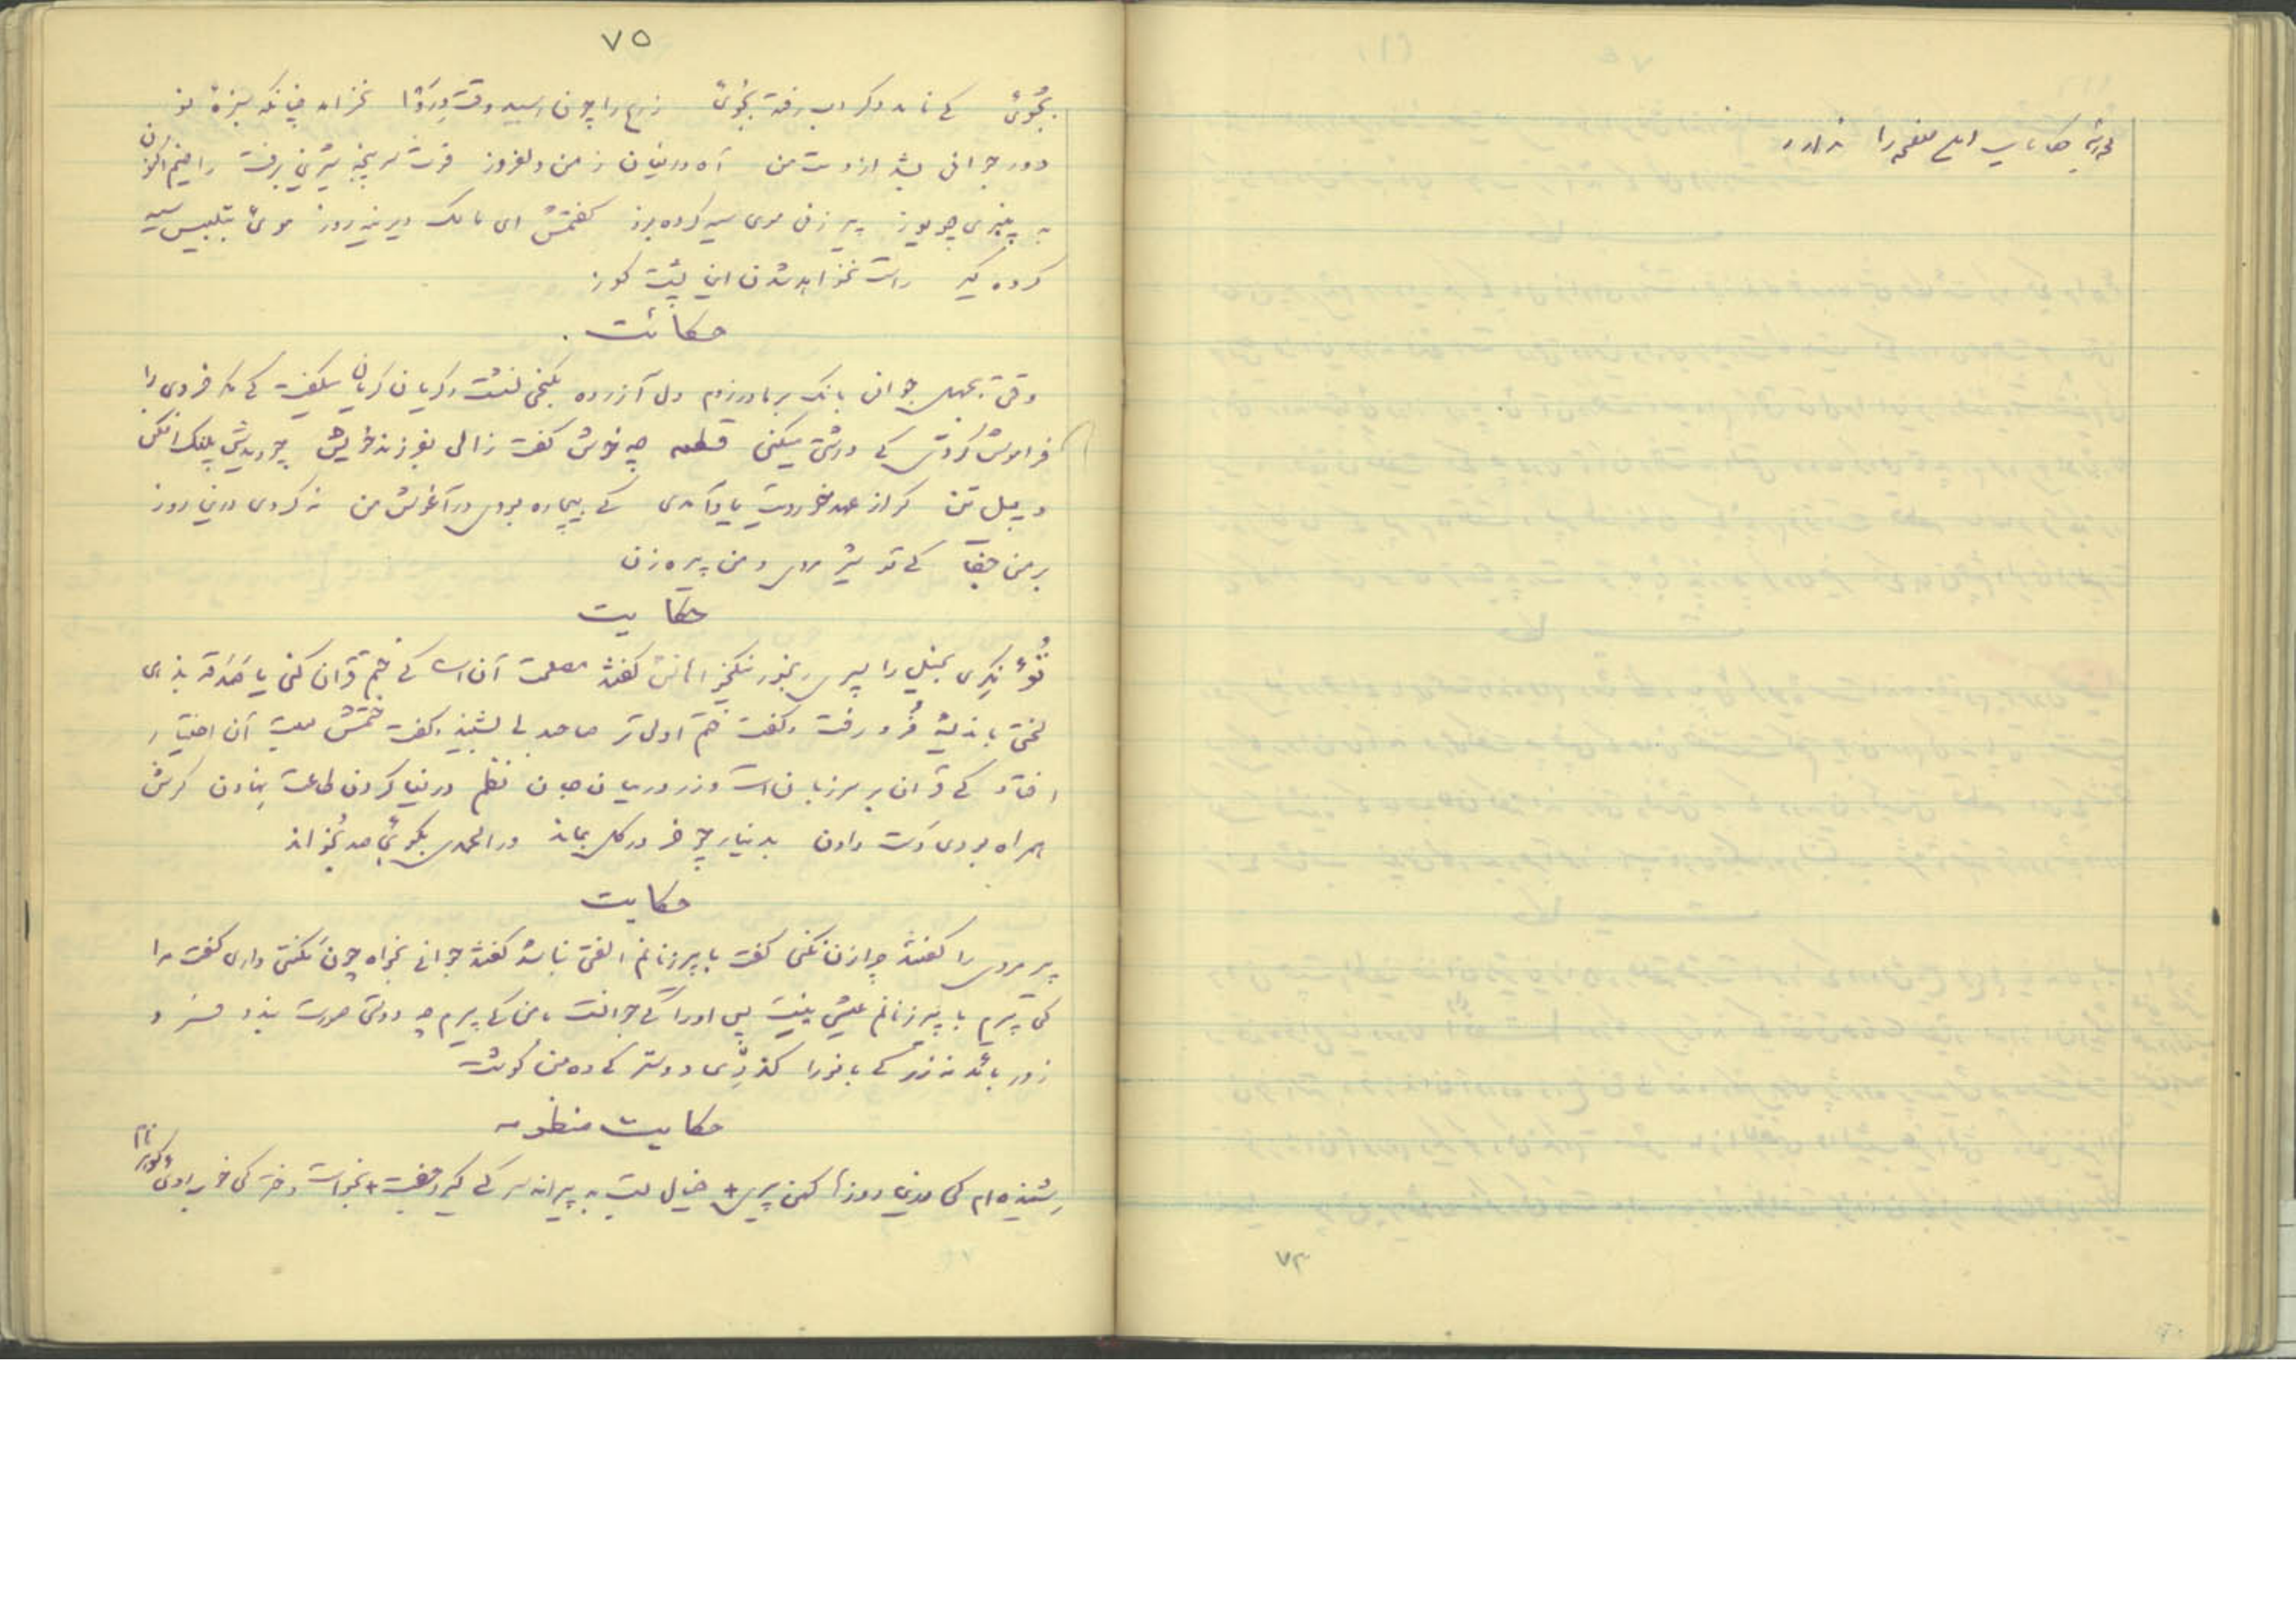 ۷۵
بجوئ کے ناید دکر اب رفتہ بجوئ زرع را چون رسید وقت درَوْا نخرامد چنانکہ سبزۂ نو
دور جوانی بشد از دست من آہ دریغ ان زمن دلفروز قوت سرپنجہ شیری برفت راضیم اکنون
بہ پنیری چو یوز پیر زنی موی سیہ کردہ بود کفتمش ای مامک دیرینہ روز موی بتلبیس سیہ
کردہ کیر راست نخواہد شدن این پشت کوز
حکائت
وقتی بجہل جوانی بانک بر مادر زدم دل آزردہ بکنجی نشست و کریان کریان میکفت کے مکر خوردی را
فراموش کردی کے درشتی میکنی قطعہ چہ خوش کفت زالی بفرزند خویش چو دیدش پلنک افکن
و پیل تن کر از عہد خوردیت یاد آمدی کے بیچارہ بودی در آغوش من نہ کردی درین روز
بر من جفا کے تو شیر مردی و من پیرہ زن
حکایت
تونکری بخیل را پسری رنجور نیکخواہانش کفتند مصلحت آن است کے ختم قران کنی یا صَدَقہ بدہی
لختی باندیشہ فُرو رفت و کفت ختم اولی تر صاحب دلی بشنید و کفت ختمش بعلت آن اختیار
افتاد کے قران بر سر زبان است و زر در میان جان نظم دریغا کردن طاعت نہادن کرش
ہمراہ بودی دَست دادن بدیناری چو خر در کل بماند ور الحمدی بکوئی صد بخواند
حکایت
پیر مردی را کفتند چرا زن نکنی کفت با پیر زنانم الفتی نباشد کفتند جوانی بخواہ چون مکنت داری کفت مرا
کی پیرم با پیر زنانم عیش نیست پس او را کے جوانست با من کے پیرم چہ دوستی صورت بندد
زور باید نہ زر کے بانورا کذری دوستر کے دہ من کوشت
حکایت منظومہ
شنیدہ ام کی درین روزہا کہن پیری + خیال بست بہ پیرانہ سر کے کیرد جفت + بخواست دختر کی خوبروئ کوہر نام
۷۴